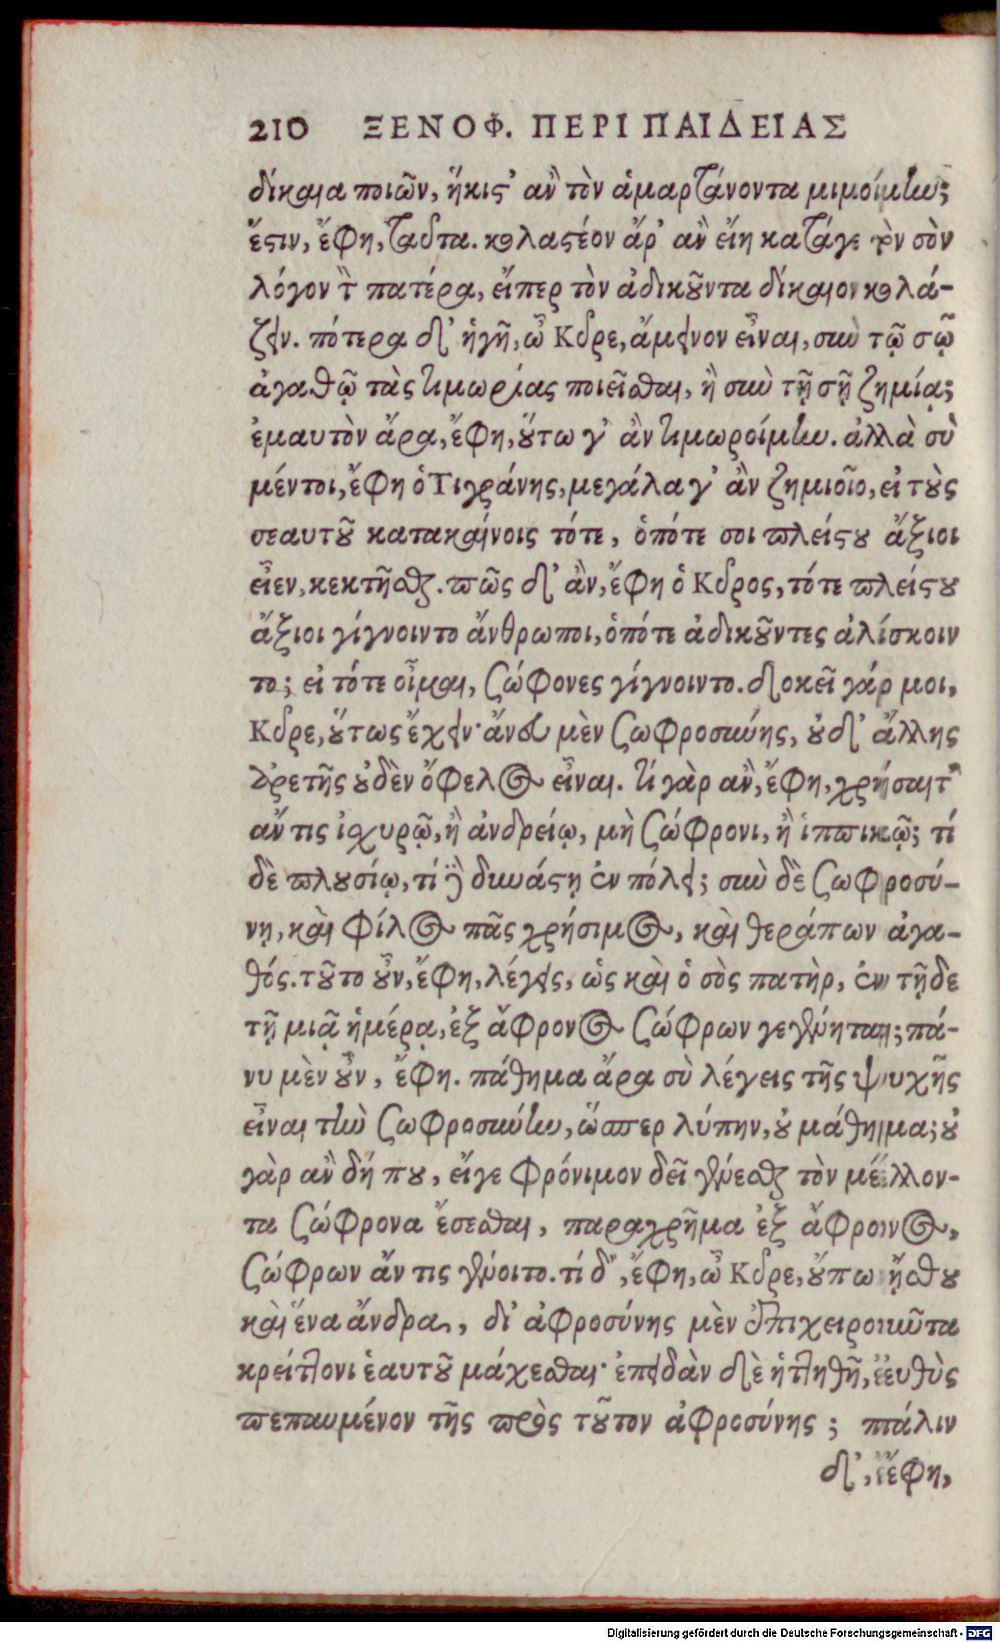 210 ΞΕΝΟΦ. ΠΕΡΙ ΠΑΙΔΕΙΑΣ
δίκαια ποιῶν, ἥκιστ' ἂν τὸν ἁμαρτάνοντα μιμοίμην;
ἔστιν, ἔφη, ταῦτα. κολαστέον ἄρ' ἂν εἴη κατάγε τὸν σὸν
λόγον τὸν πατέρα, εἴπερ τὸν ἀδικοῦντα δίκαιον κολά-
ζειν. πότερα δ' ἡγῇ, ὦ Κῦρε, ἄμεινον εἶναι, σὺν τῷ σῷ
ἀγαθῷ τὰς τιμωρίας ποιεῖσθαι, ἢ σὺν τῇ σῇ ζημίᾳ;
ἐμαυτὸν ἄρα, ἔφη, οὕτω γ' ἂν τιμωροίμην. ἀλλὰ σὺ
μέντοι, ἔφη ὁ Τιγράνης, μεγάλα γ' ἂν ζημιοῖο, εἰ τοὺς
σεαυτοῦ κατακαίνοις τότε, ὁπότε σοι πλείστου ἄξιοι
εἶεν, κεκτῆσθαι. πῶς δ' ἂν, ἔφη ὁ Κῦρος, τότε πλείστου
ἄξιοι γίγνοιντο ἄνθρωποι, ὁπότε ἀδικοῦντες ἁλίσκοιν
το; εἰ τότε οἶμαι, σώφονες γίγνοιντο. δοκεῖ γάρ μοι,
Κῦρε, οὕτως ἔχειν· ἄνευ μὲν σωφροσύνης, οὐδ' ἄλλης
ἀρετῆς οὐδὲν ὄφελος εἶναι. τί γὰρ ἂν, ἔφη, χρήσαιτ'
ἄν τις ἰσχυρῷ, ἢ ἀνδρείῳ, μὴ σώφρονι, ἢ ἱππικῷ; τί
δὲ πλουσίῳ, τί δὲ δυνάστῃ ἐν πόλει; σὺν δὲ σωφροσύ-
νῃ, καὶ φίλος πᾶς χρήσιμος, καὶ θεράπων ἀγα-
θός. τοῦτο οὖν, ἔφη, λέγεις, ὡς καὶ ὁ σὸς πατὴρ, ἐν τῇδε
τῇ μιᾷ ἡμέρᾳ, ἐξ ἄφρονος σώφρων γεγένηται; πά-
νυ μὲν οὖν, ἔφη. πάθημα ἄρα σὺ λέγεις τῆς ψυχῆς
εἶναι τὴν σωφροσύνην, ὥσπερ λύπην, οὐ μάθημα; οὐ
γὰρ ἂν δή που, εἴγε φρόνιμον δεῖ γενέσθαι τὸν μέλλον-
τα σώφρονα ἔσεσθαι, παραχρῆμα ἐξ ἄφρονος,
σώφρων ἄν τις γένοιτο. τί δ', ἔφη, ὦ Κῦρε, οὔπω ᾔσθου
καὶ ἕνα ἄνδρα, δι' ἀφροσύνης μὲν ἐπιχειροῦντα
κρείττονι ἑαυτοῦ μάχεσθαι· ἐπειδὰν δὲ ἡττηθῇ, εὐθὺς
πεπαυμένον τῆς πρὸς τοῦτον ἀφροσύνης; πάλιν
δ', ἔφη,
Digitalisierung gefördert durch die Deutsche Forschungsgemeinschaft - DFG